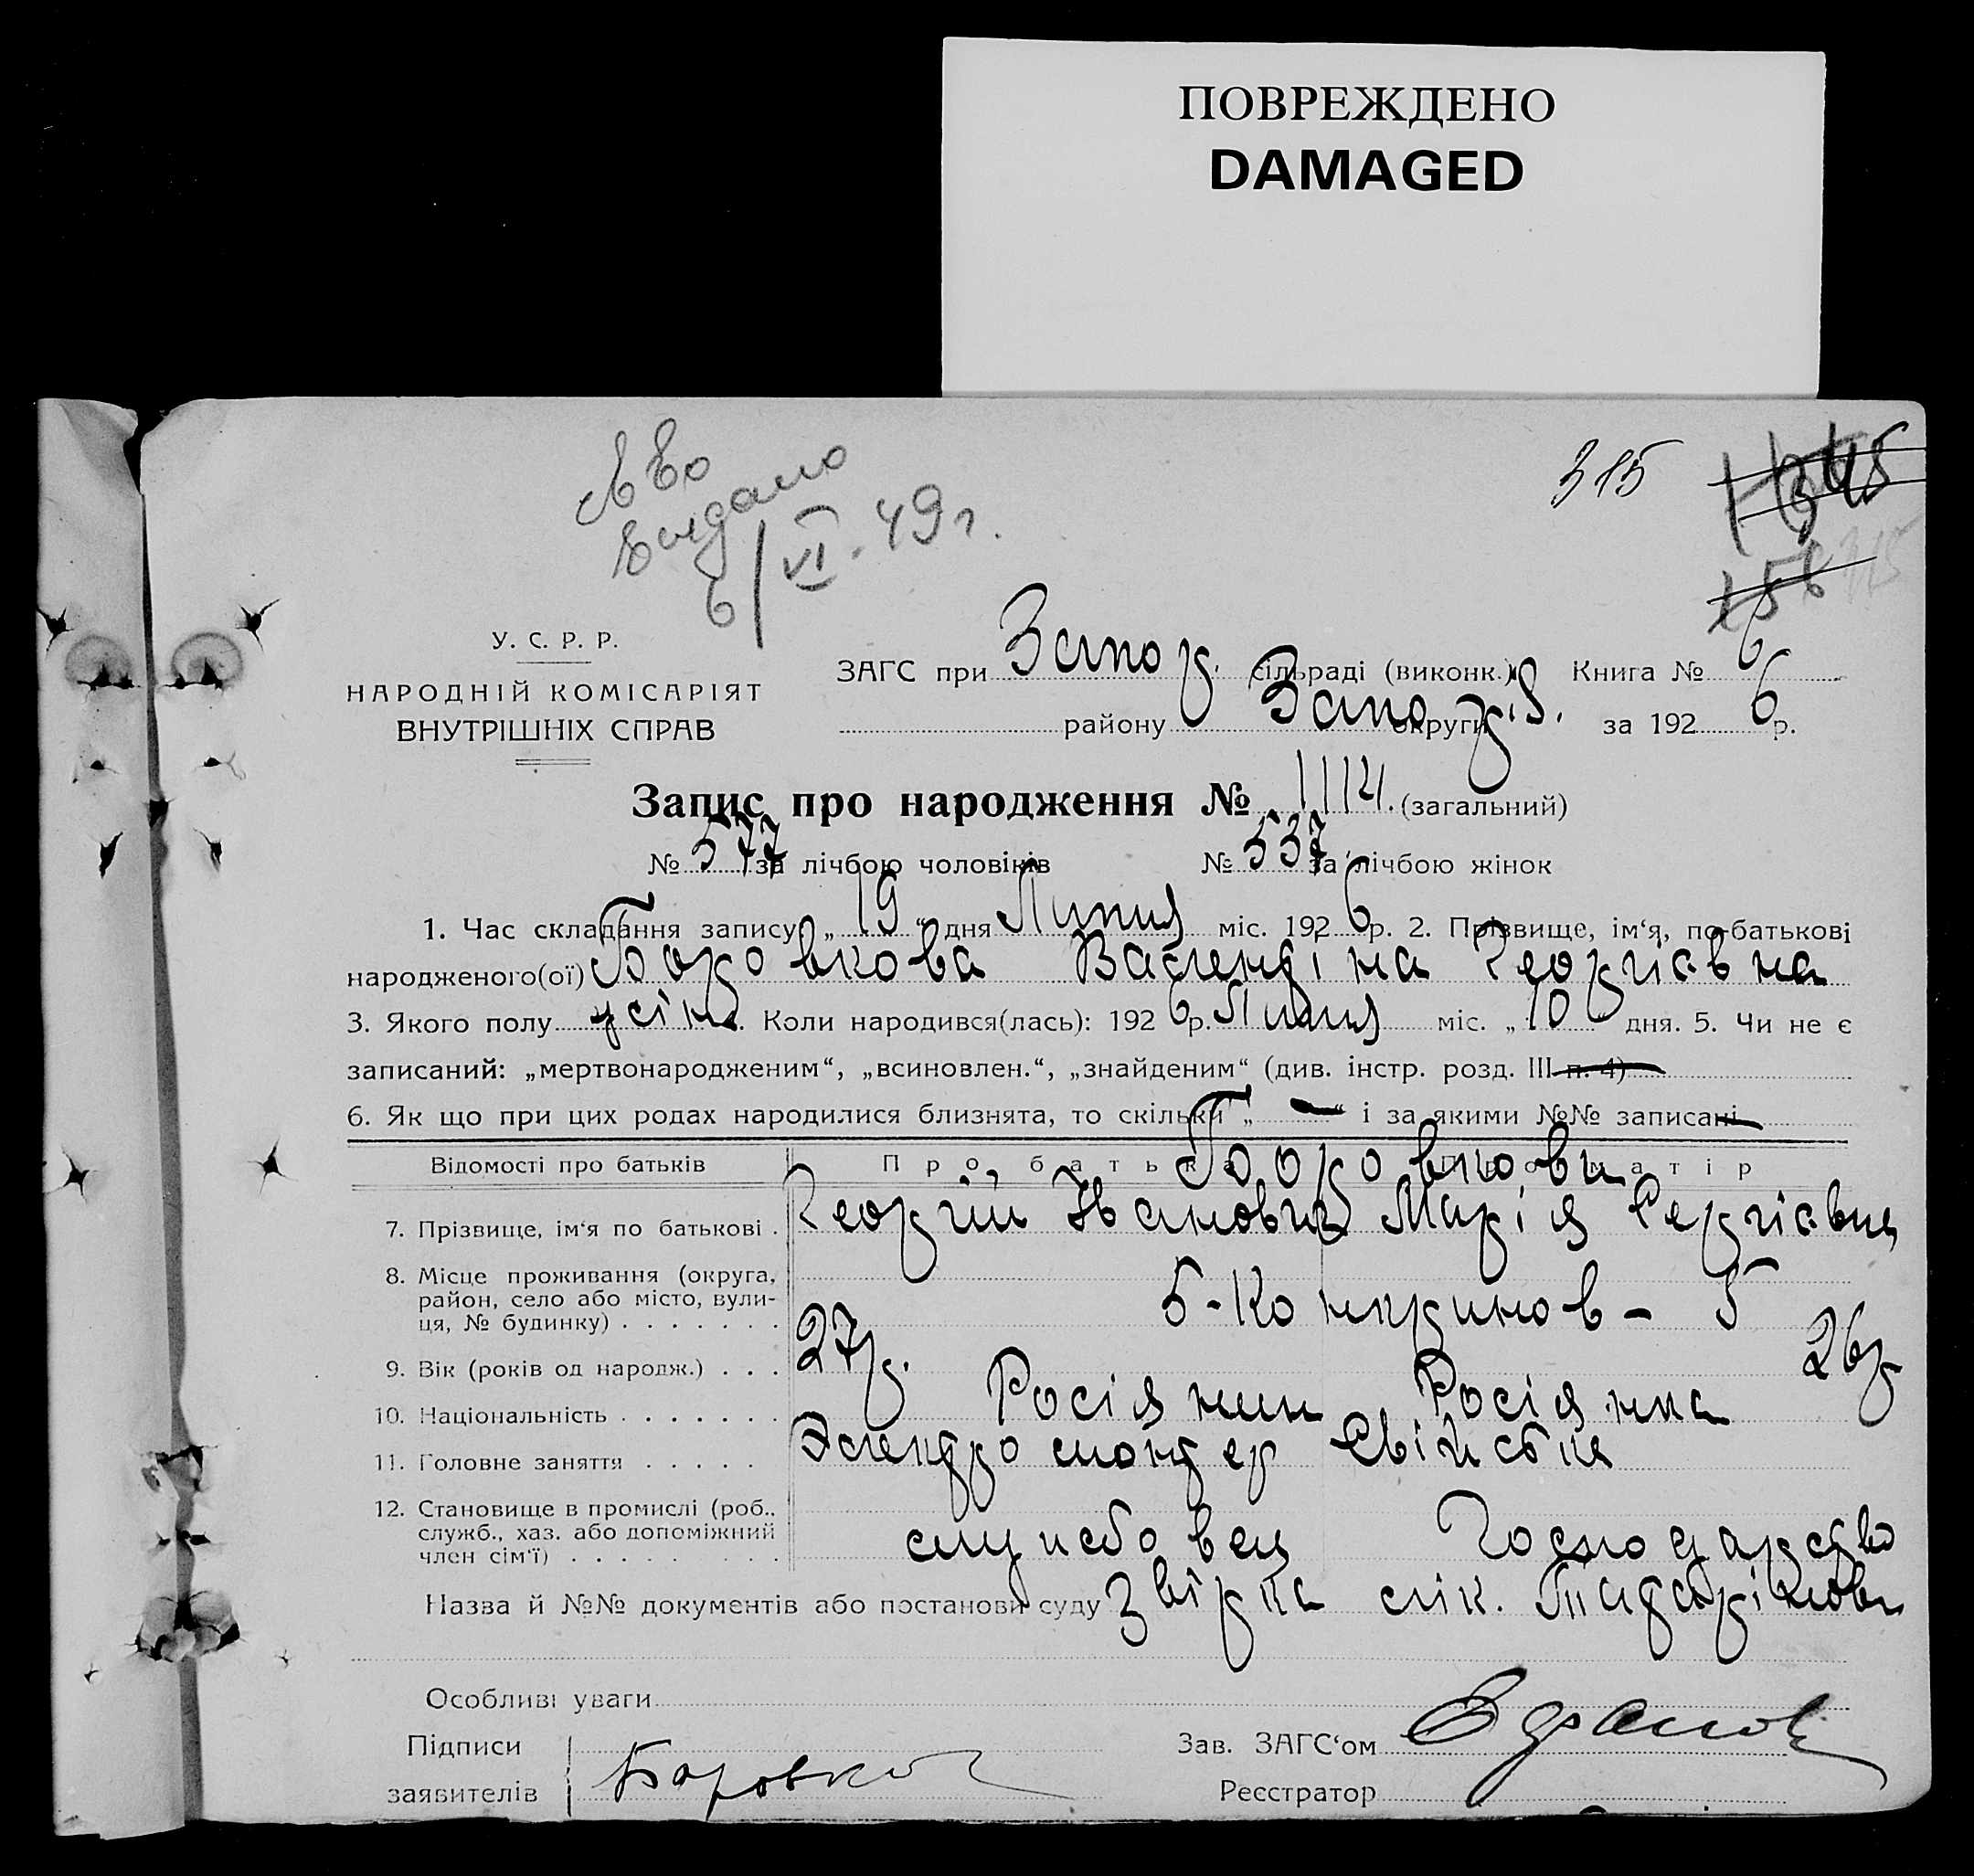 ПОВРЕЖДЕНО
DAMAGED
выдано
6/VI.49г.
315
У. С. Р. Р.
НАРОДНІЙ КОМІСАРІЯТ
ВНУТРІШНІХ СПРАВ
ЗАГС при Запор. сільраді (виконк.) Книга № 6
району Запор. округи за 1926 р.
Запис про народження № 1114 (загальний)
№ 577 за лічбою чоловіків № 537 за лічбою жінок
1. Час складання запису „19“ дня Липня міс. 1926 р. 2. Прізвище, ім‘я, по-батькові
народженого(ої) Боровкова Валентіна Георгієвна
3. Якого полу жін. Коли народився(лась): 1926 р. Липня міс. „10“ дня. 5. Чи не є
записаний: „мертвонародженим“, „всиновлен.“, „знайденим“ (див. інстр. розд. III п. 4)
6. Як що при цих родах народилися близнята, то скільки „ — “ і за якими №№ записані
Відомості про батьків Про батька Про матір
Боровкови
7. Прізвище, ім‘я по батькові . Георгій Іванович Марія Сергієвна
8. Місце проживання (округа,
район, село або місто, вули-
ця, № будинку) . . . . . . .
9. Вік (років од народж.) . . . 27р. 26р
10. Національність . . . . . . . Росіянин Росіянка
11. Головне заняття . . . . . Электромонтер Свійське
12. Становище в промислі (роб.,
служб., хаз. або допоміжний
член сім‘ї) . . . . . . . . службовец Господарство
Назва й №№ документів або постанови суду
Особливі уваги
Підписи
заявителів Боровков
Зав. ЗАГС‘ом
Реєстратор